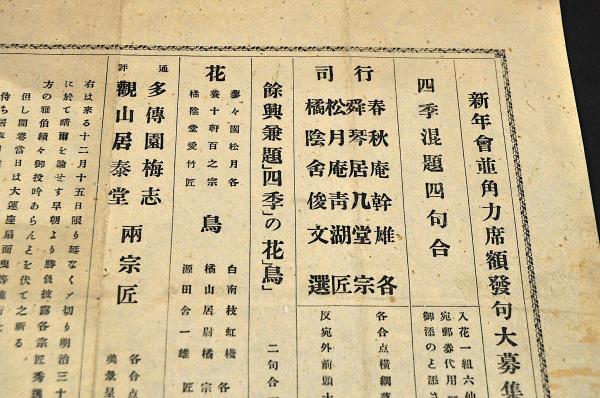 新年會並角力席額發句大募集
四季混題四句合
入花一組六仙
宛郵券代用
御添のと添さ
行司
春秋庵幹雄
舜琴居几堂
松月庵青湖
橘陰舍俊文
各宗匠選
各合点橫綱
反宛外前頭十
餘興兼題「四季」の花「鳥」
二句合
花
夢々園松月
養十軒百之
橘陰堂愛竹
各宗匠
鳥
白南枝虹橋
橘山居尉橘
源田舍一雄
各宗匠
通評
多傳園梅志
觀山居泰堂
兩宗匠
各合点
美景呈
右は來る十二月十五日限り延なく〆切り明治三十
に於て晴雨を論せす早朝より勝負披露各宗匠秀選
方の雅伯續々御投吟あらんことを伏て之祈る
但し開卷當日は大運座扇面曳等施行